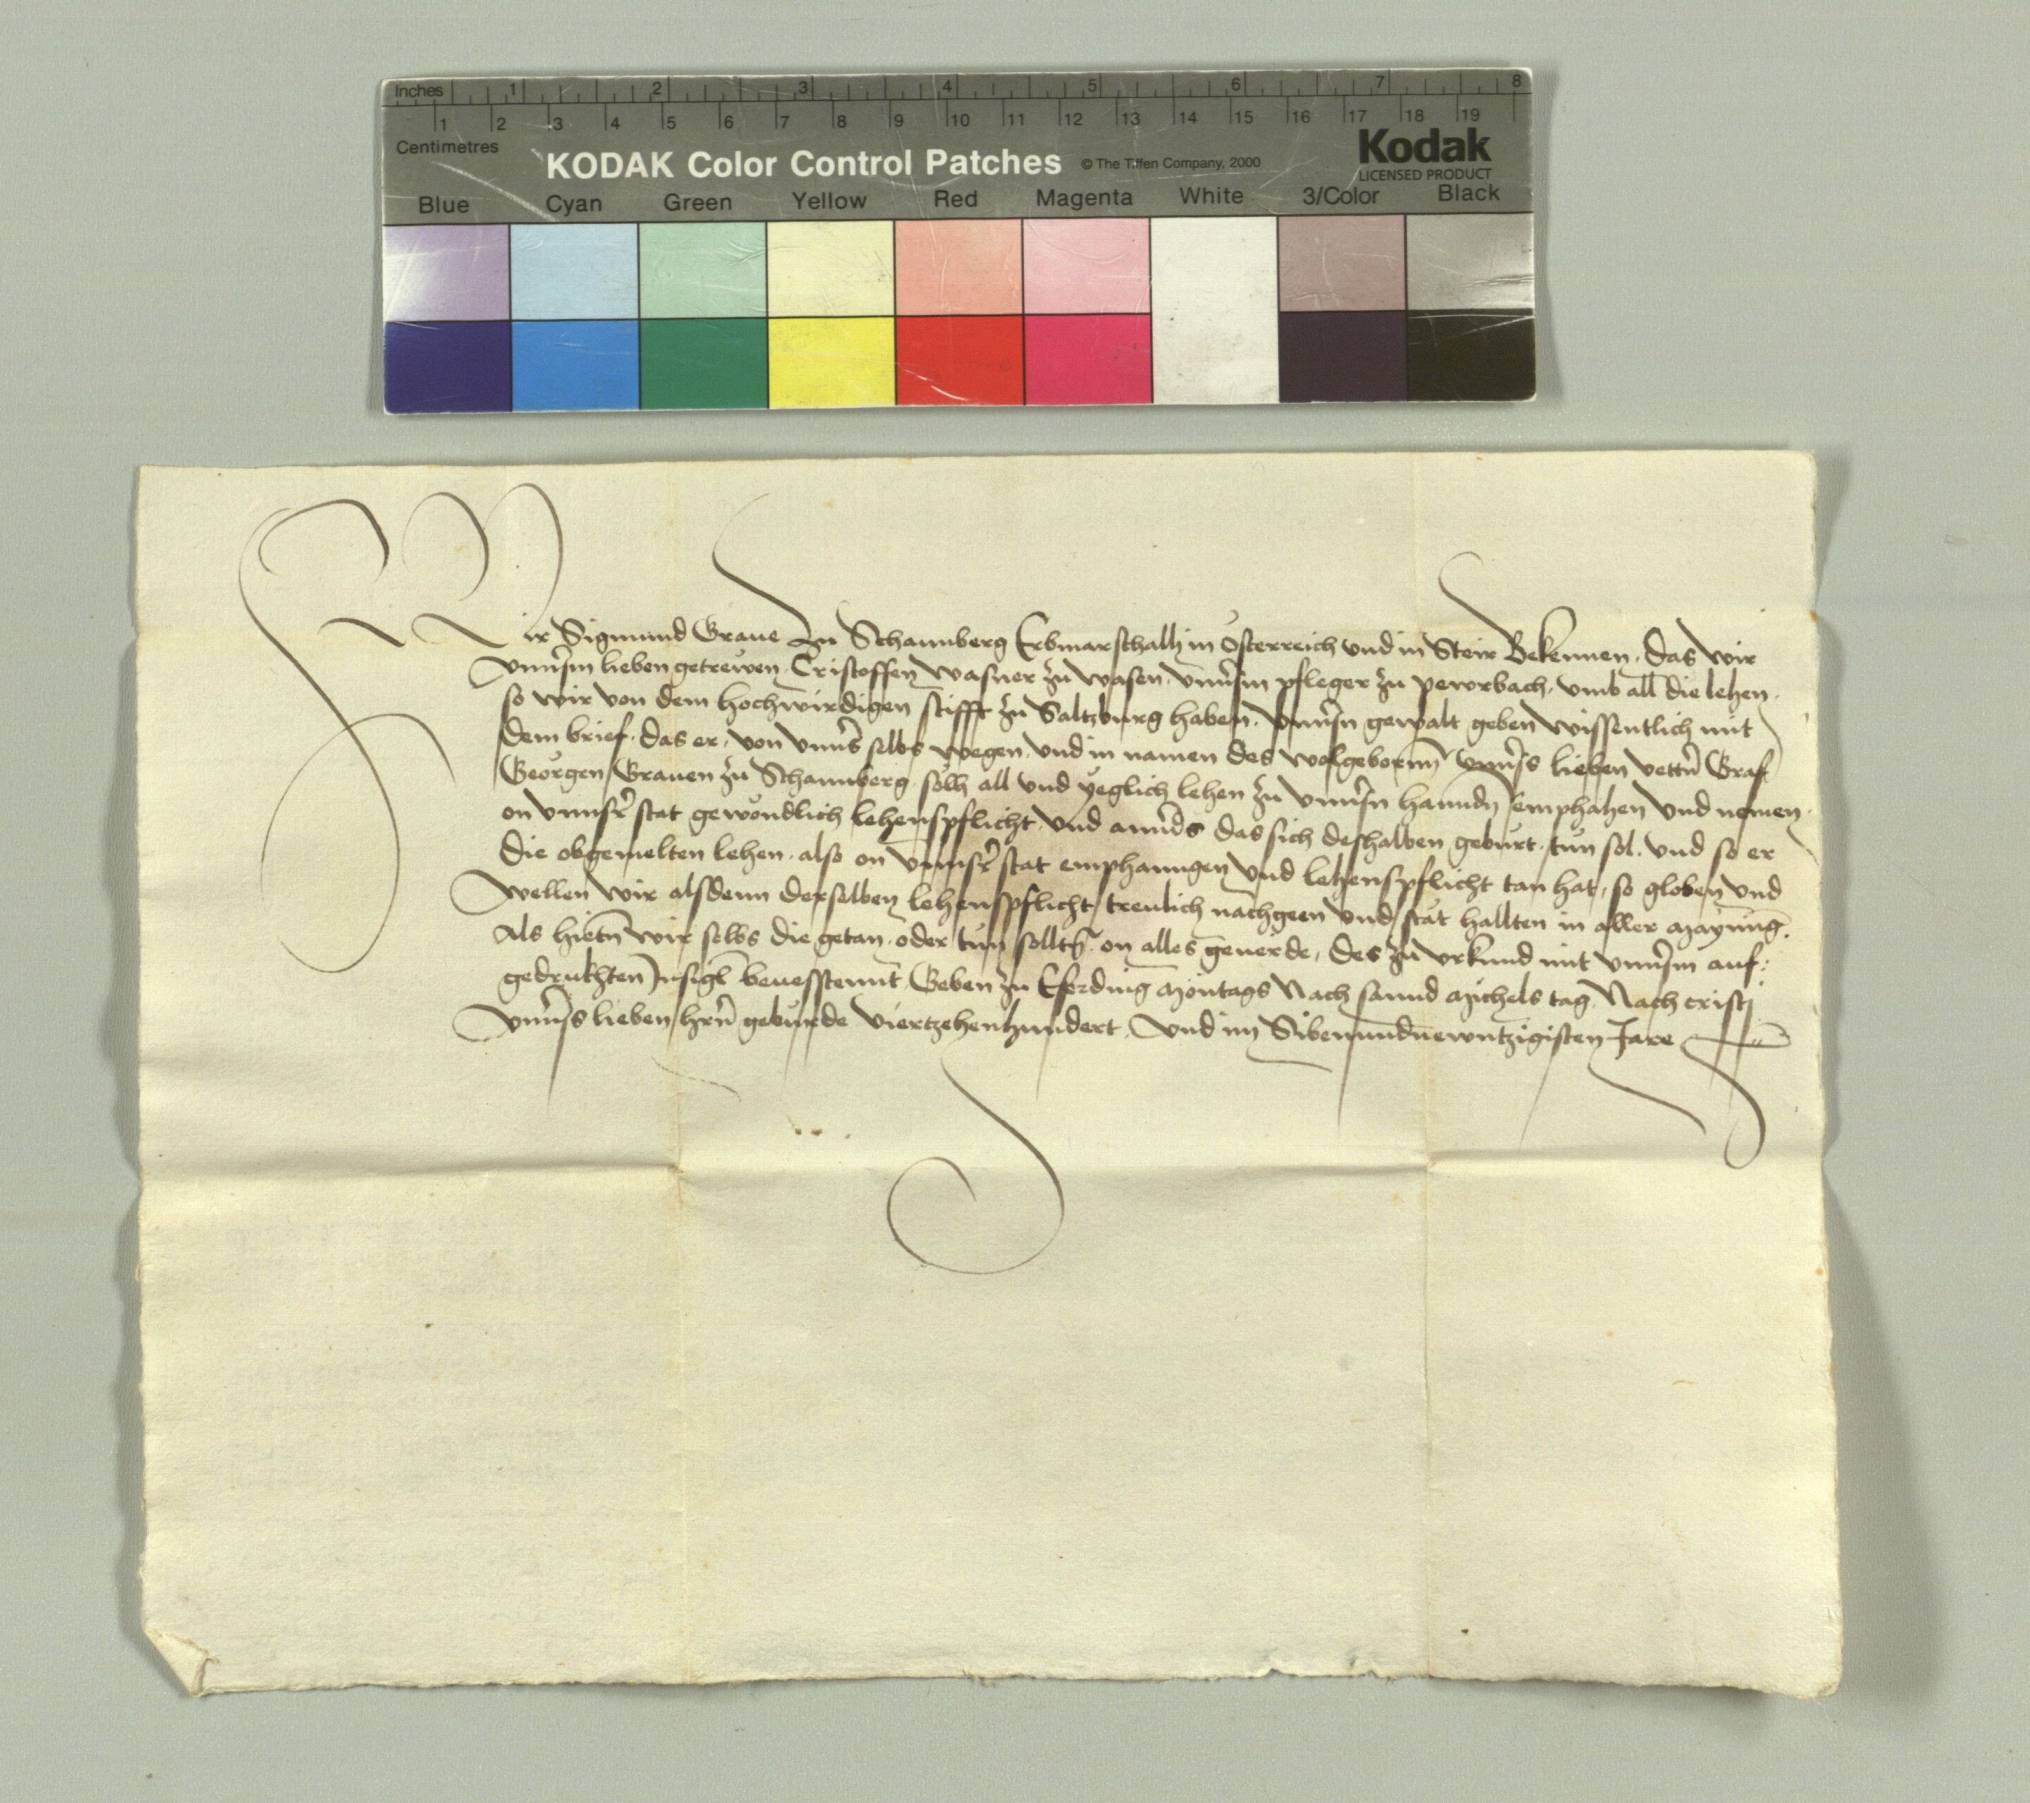 Inches 1 2 3 4 5 6 7 8
1 2 3 4 5 6 7 8 9 10 11 12 13 14 15 16 17 18 19
Centimetres
KODAK Color Control Patches © The Tiffen Company, 2000 Kodak
LICENSED PRODUCT
Blue Cyan Green Yellow Red Magenta White 3/Color Black
Wir Sigmund Graue zu Schaunberg Erbmarschalh in Osterreich vnd in Steir Bekennen. das wir
vnnserm lieben getrewen Cristoffen Wasner zu Wasen. vnnserm pfleger zu pewrbach. vmb all die lehen.
so wir von dem hochwirdigen stifft zu Saltzburg haben. vnnsern gewalt geben wissentlich mit
dem brief. das er. von vnnser selbs wegen. vnd in namen des wolgebornn vnnsers lieben vettern Graf
Georgen Grauen zu Schaunberg. sölh all vnd yeglich lehen zu vnnsern hannden emphahen vnd nemen.
on vnnser stat gewondlich lehenspflicht. vnd annders das sich deshalben geburt. tun sol. vnd so er
die obgemelten lehen. also on vnnser stat emphanngen vnd lehenspflicht tan hat, so globen vnd
wellen wir alsdenn derselben lehenspflicht treulich nachgeen vnd stät hallten in aller maynung.
Als hieten wir selbs die getan. oder tun sollten. on alles geuerde, des zu vrkund mit vnnserm auf:
gedrukhten Insigl beuesstennt. Geben zu Eferding Montags Nach sannd Michels tag. Nach cristi
vnnsers lieben hern geburde viertzehenhundert. vnd im Sibenundnewntzigisten Jare